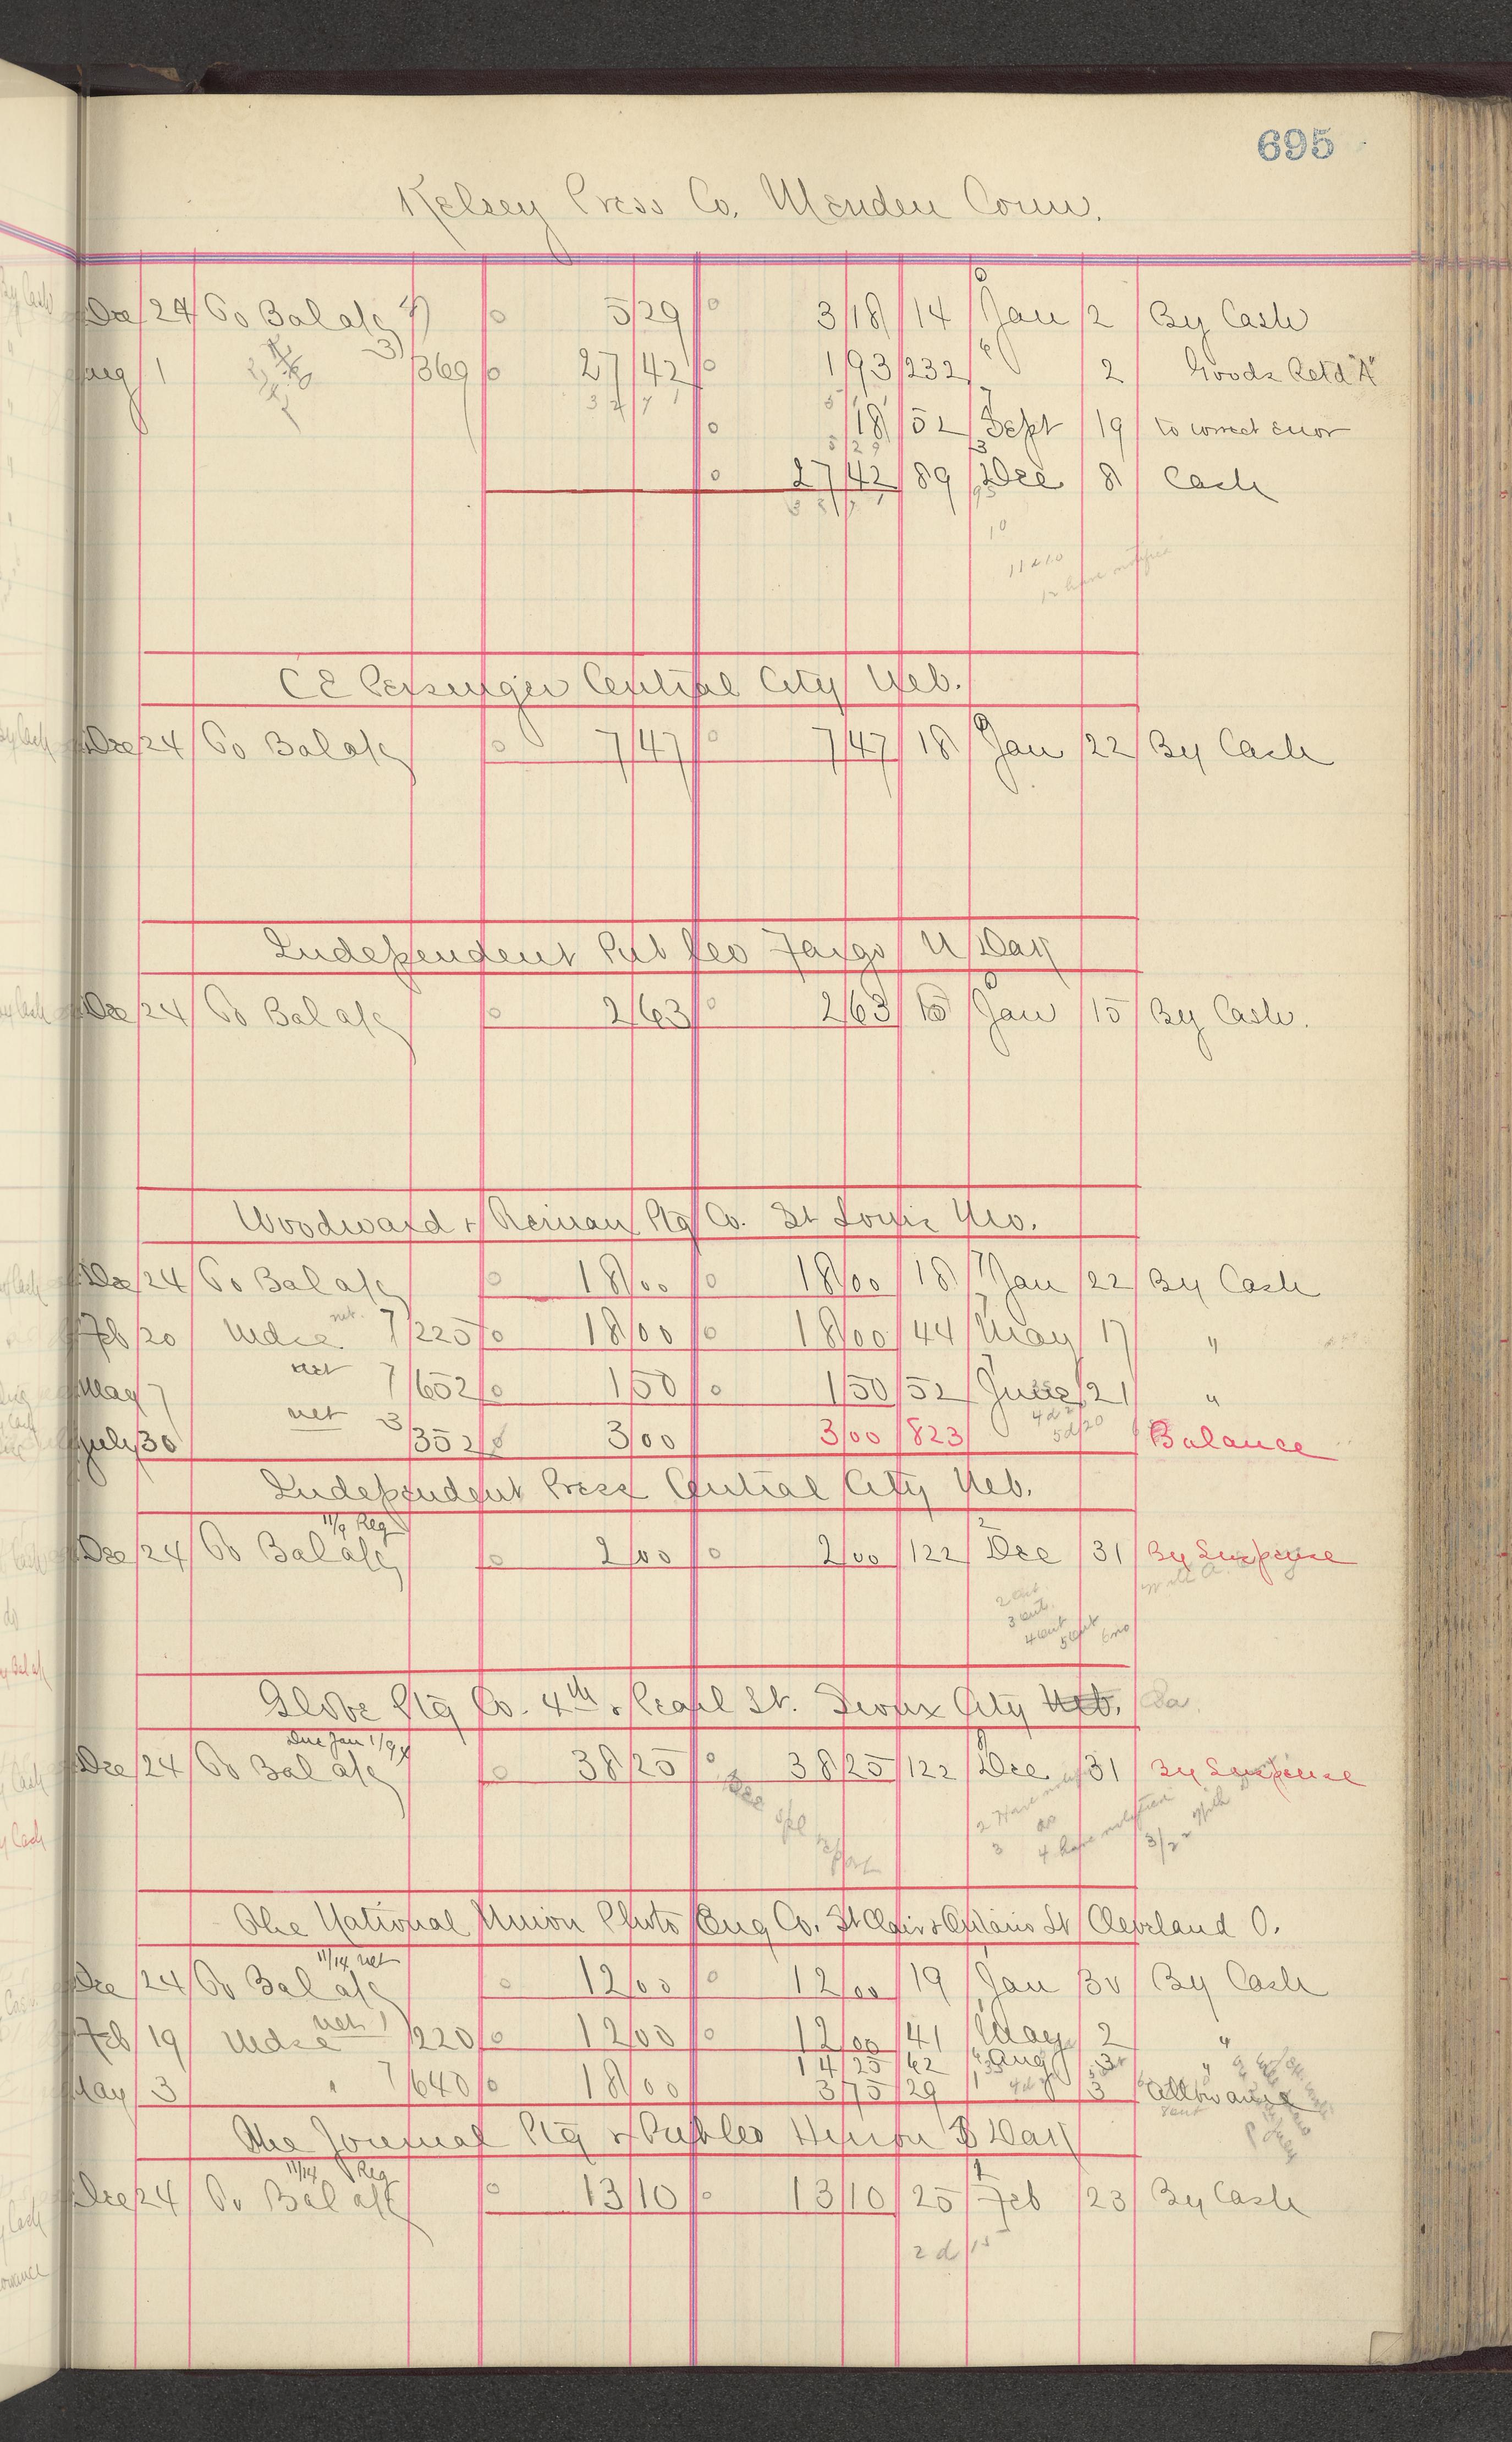 695
Kelsey Press Co. Meriden Conn.
Dec 24 To Bal a/c 5 29 3 18 14 Jan 2 By Cash
Aug 1 3 369 27 42 1 93 232 " 2 Goods Retd "A"
32 71
18 52 Sept 19 to correct error
5 29
27 42 89 Dec 8 Cash
32 71
10
11 d 10
12 have notified
C E Persinger Central City Neb.
Dec 24 To Bal a/c 7 47 7 47 18 Jan 22 By Cash
Independent Pub Co Fargo N Dak
Dec 24 To Bal a/c 2 63 2 63 15 Jan 15 By Cash.
Woodward & Tiernan Ptg Co. St Louis Mo.
Dec 24 To Bal a/c 18 00 18 00 18 Jan 22 By Cash
Feb 20 Mdse net 7 225 18 00 18 00 44 May 17 "
May 7 net 7 652 1 50 1 50 52 June 21 "
July 30 net 3 352 3 00 3 00 823 Balance
4 d 2
5 d 20
Independent Press Central City Neb.
11/9 Reg
Dec 24 To Bal a/c 2 00 2 00 122 Dec 31 By Suspense
2 ent
3 ent.
4 ent 5 ent 6 no
Globe Ptg Co. 4th & Pearl St. Sioux City Neb. Ia.
Due Jan 1/94
Dec 24 To Bal a/c 38 25 38 25 122 Dec 31 By Suspense
See spl report
2 Have notif
3 do
4 have notified
The National Union Photo Eng Co. St Clair & Ontario St Cleveland O.
11/14 net
Dec 24 To Bal a/c 12 00 12 00 19 Jan 30 By Cash
Feb 19 Mdse net 7 220 12 00 12 00 41 May 2 "
14 25 62 Aug 3 "
May 3 " 7 640 18 00 3 75 29 3 Allowance
The Journal Ptg & Pub Co Huron S Dak
11/14 Reg
Dec 24 To Bal a/c 13 10 13 10 25 Feb 23 By Cash
2 d 15